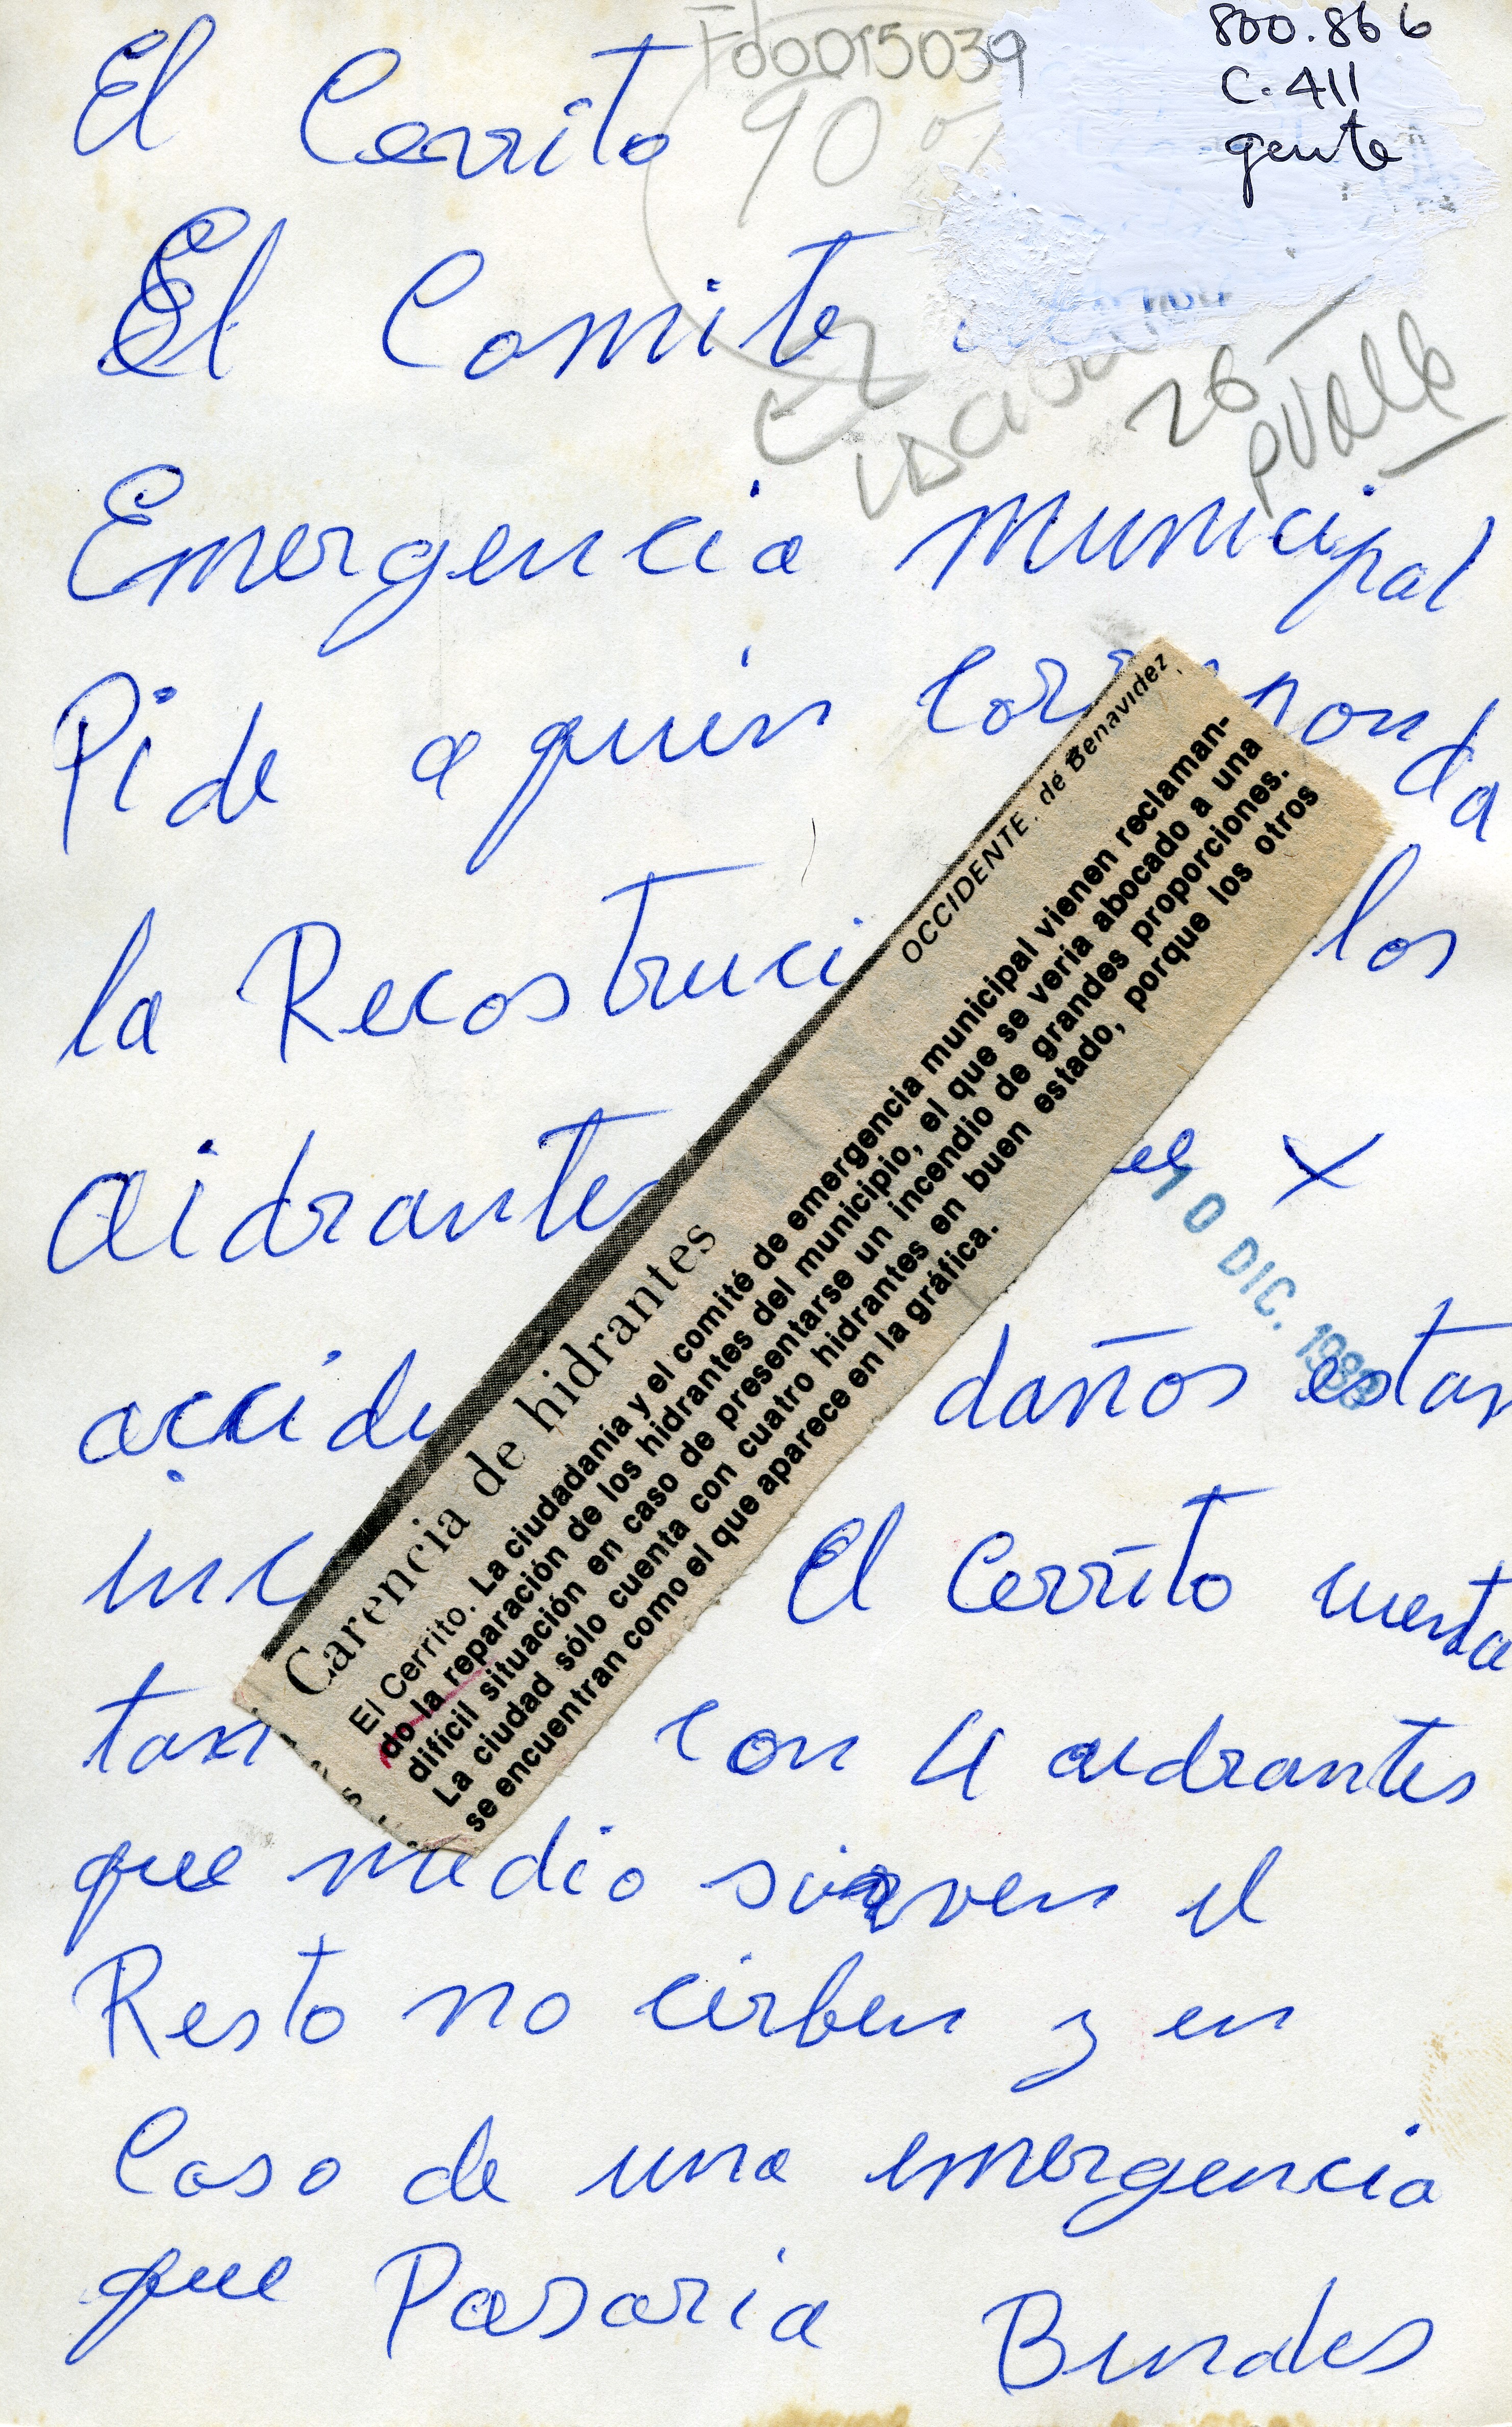 Fd0015039
90 %
800.866
C.411
gente
El Cerrito
El Comite
26
PValle
Emergencia Municipal
Pide a quien
la los
aidrantes x
10 DIC. 1988
daños estan
El Cerrito cuenta
con 4 aidrantes
que medio sirven el
Resto no cirben y en
Caso de una emergencia
que Pasaria
OCCIDENTE, de Benavidez
Carencia de hidrantes
El Cerrito. La ciudadanía y el comité de emergencia municipal vienen reclaman-
do la reparación de los hidrantes del municipio, el que se vería abocado a una
difícil situación en caso de presentarse un incendio de grandes proporciones.
La ciudad sólo cuenta con cuatro hidrantes en buen estado, porque los otros
se encuentran como el que aparece en la gráfica.